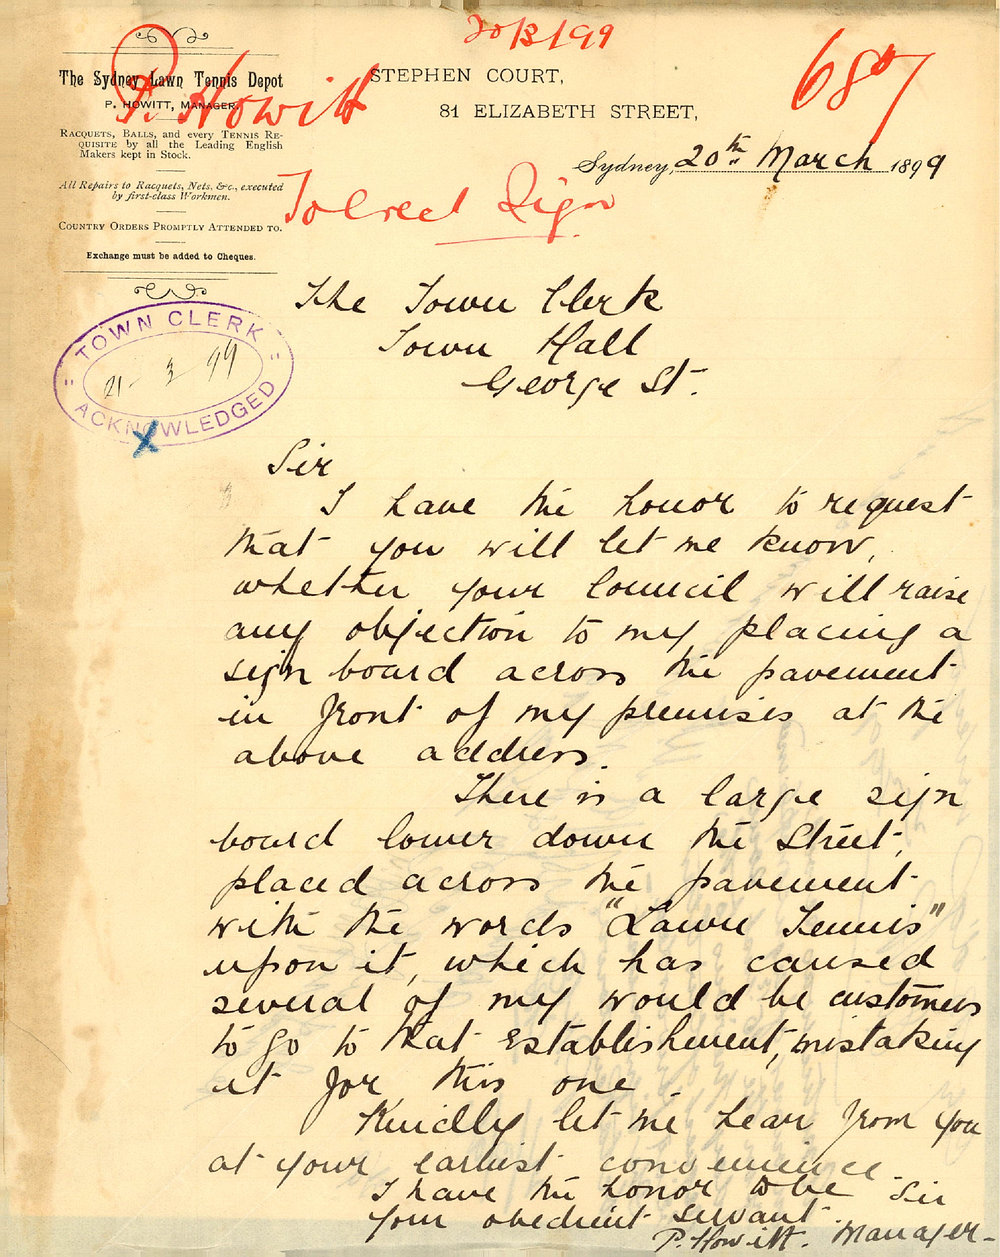 20/3/99
687
P. Howitt
To Erect Sign
The Sydney Lawn Tennis Depot
P. HOWITT, MANAGER.
RACQUETS, BALLS, and every TENNIS RE-
QUISITE by all the Leading English
Makers kept in Stock.
All Repairs to Racquets, Nets, &c., executed
by first-class Workmen.
COUNTRY ORDERS PROMPTLY ATTENDED TO.
Exchange must be added to Cheques.
STEPHEN COURT,
81 ELIZABETH STREET,
Sydney, 20th March 1899
TOWN CLERK
21-3-99
ACKNOWLEDGED
X
The Town Clerk
Town Hall
George St.
Sir
I have the honor to request
that you will let me know,
whether your Council will raise
any objection to my placing a
sign board across the pavement
in front of my premises at the
above address.
There is a large sign
board lower down the Street,
placed across the pavement
with the words "Lawn Tennis"
upon it, which has caused
several of my would be customers
to go to that Establishment, mistaking
it for this one
Kindly let me hear from you
at your earliest convenience.
I have the honor to be Sir
Your obedient servant.
P. Howitt. Manager-